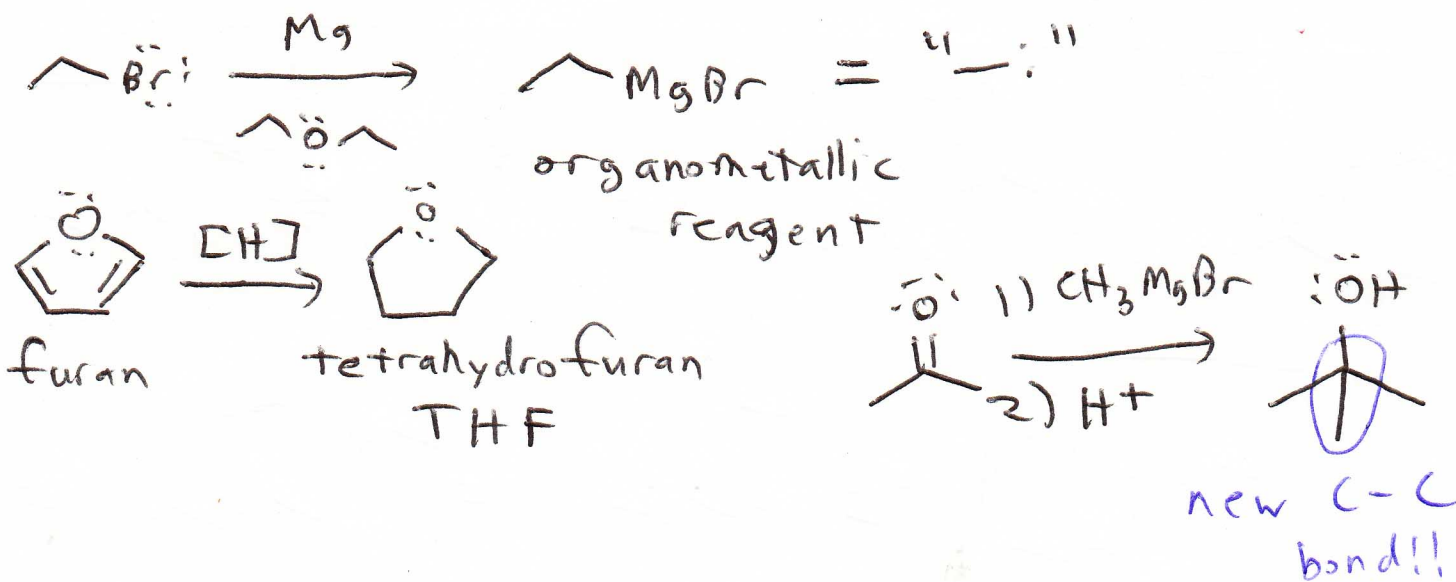 Mg
Br
MgBr = " — : "
O
organometallic
reagent
O
[H]
O
furan
tetrahydrofuran
THF
O
1) CH3MgBr
2) H+
OH
new C-C
bond!!